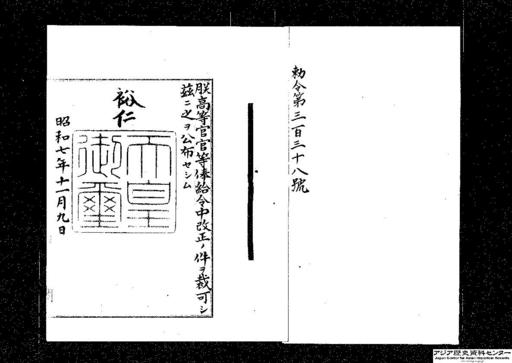 勅令第三百三十八號
朕高等官官等俸給令中改正ノ件ヲ裁可シ
茲ニ之ヲ公布セシム
裕仁
天皇
御璽
昭和七年十一月九日
アジア歴史資料センター
Japan Center for Asian Historical Records